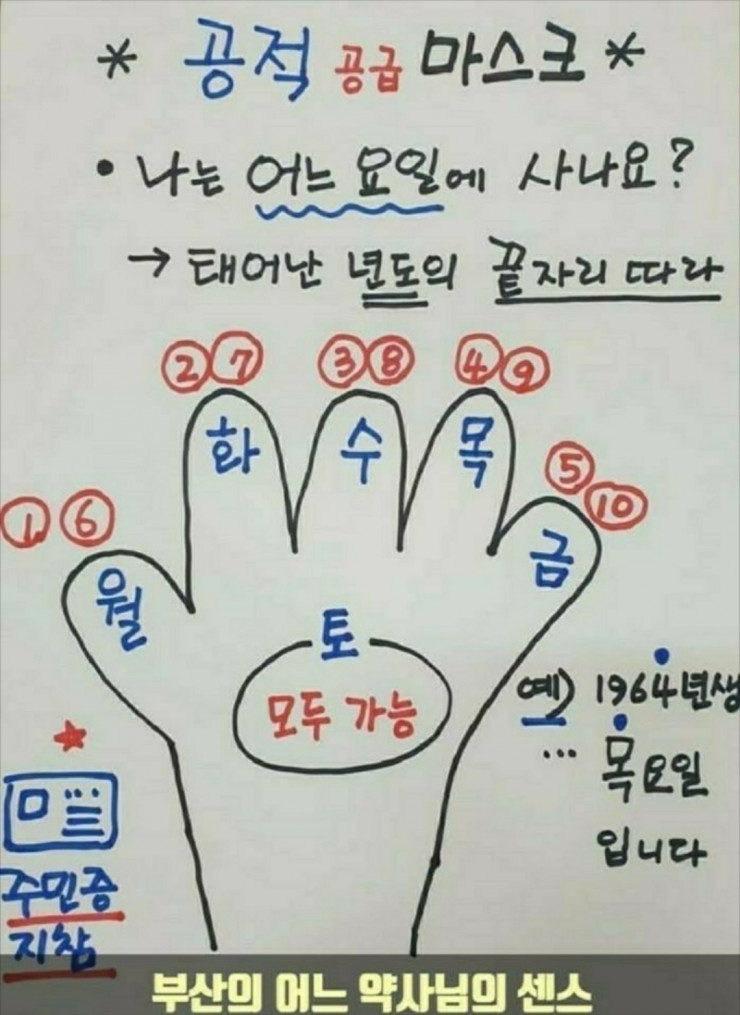 * 공적 공급 마스크 *
• 나는 어느 요일에 사나요?
→ 태어난 년도의 끝자리 따라
② ⑦ ③ ⑧ ④ ⑨
화 수 목
⑤ ⑩
① ⑥
금
월
토
모두 가능
예) 1964년생
... 목요일
입니다
주민증
지참
부산의 어느 약사님의 센스